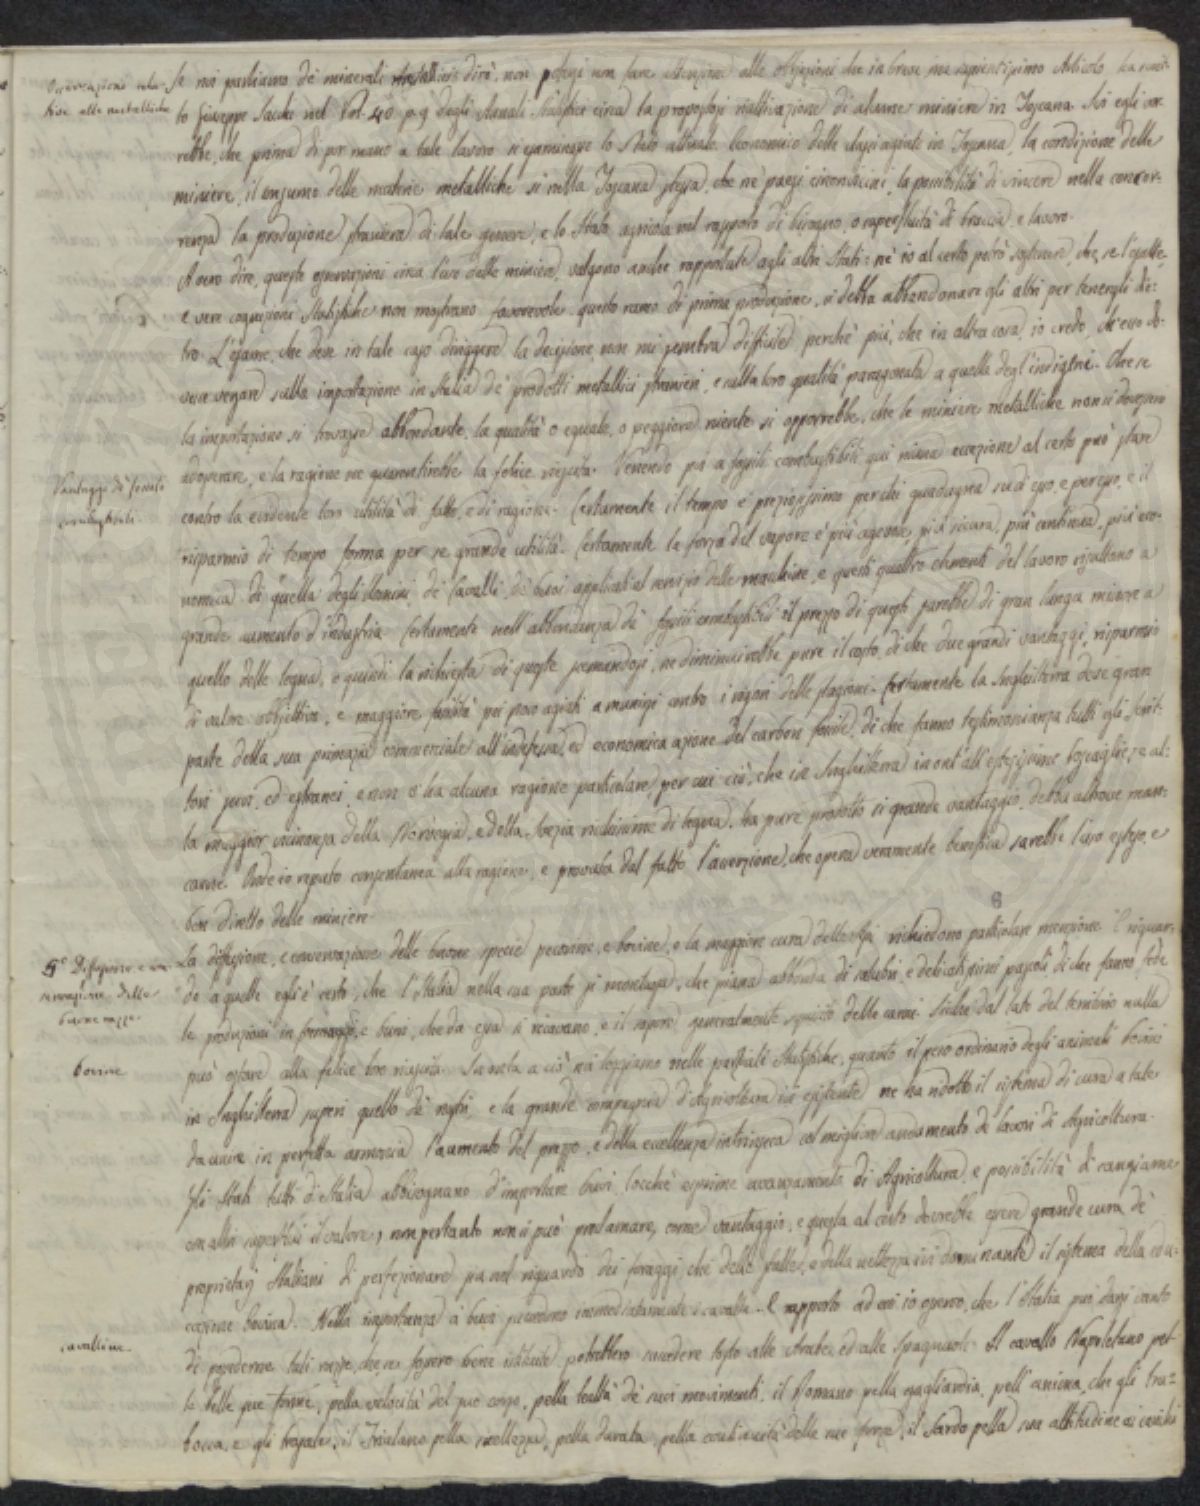 Osservazioni rela-
tive alle metalliche
Se noi parliamo de' minerali metallici dirò, non potersi non fare attenzione alle riflessioni che in breve, ma sapientissimo Articolo ha
to Giuseppe Sacchi nel Vol. 40 p. 9 degli Annali circa la propostasi riattivazione di alcune miniere in Toscana. Ivi egli vor-
rebbe, che prima di por mano a tale lavoro si esaminasse lo Stato attuale Economico delle in Toscana, la condizione delle
miniere, il consumo delle materie metalliche sì nella Toscana stessa, che ne' paesi circonvicini, la possibilità di vincere nella concor-
renza la produzione straniera di tale genere, e lo Stato agricola nel rapporto di bisogno, o superfluità di braccia e lavoro.
A vero dire, queste osservazioni circa l'uso delle miniere, valgono anche rapportate agli altri Stati: nè io al certo potrò sostenere, che, se l'esatte,
e vere cognizioni Statistiche non mostrano favorevole questo ramo di prima produzione, si debba abbandonare gli altri per tenergli die-
tro. L'esame, che deve in tale caso dirigere la decisione non mi sembra difficile, perchè più, che in altra cosa, io credo, ch'esso do-
vesse vegare sulla importazione in Italia de' prodotti metallici stranieri, e sulla loro qualità paragonata a quella degl'indigeni. Che se
la importazione si trovasse abbondante, la qualità o eguale, o peggiore niente si opporrebbe, che le miniere metalliche non si dovessero
adoperare, e la ragione ne guarentirebbe la felice riescita. Venendo poi a' fossili combustibili qui niuna eccezione al certo può stare
Vantaggi de' fossili
combustibili
contro la evidente loro utilità di fatto, e di ragione. Certamente il tempo è preziosissimo perchè guadagna su di esso, e per esso, e il
risparmio di tempo forma per se grande utilità. Certamente la forza del vapore è più agevole, più sicura, più continua, più eco-
nomica di quella degli Uomini, de' Cavalli, de' buoi applicati al servizio delle macchine, e questi quattro elementi del lavoro risultano a
grande aumento d'industria. Certamente nell'abbondanza de' fossili combustibili il prezzo di questi sarebbe di gran lunga minore a
quello delle legna, e quindi la richiesta di queste scemandosi, ne diminuirebbe pure il costo, di che due grandi vantaggi, risparmio
di valore obbiettivo, e maggiore facilità pei poco agiati a munirsi contro i rigori delle stagioni. Certamente la Inghilterra deve gran
parte della sua primazia commerciale all'indefessa, ed economica azione del carbon fossile, di che fanno testimonianza tutti gli Scrit-
tori suoi, ed estranei, e non v'ha alcuna ragione particolare per cui ciò, che in Inghilterra in ont'all'estesissime boscaglie, e al-
la maggior vicinanza della Norvegia, e della Svezia ricchissime di legna, ha pure prodotto sì grande vantaggio, debba altrove man-
carne. Onde io reputo consentanea alla ragione, e provata dal fatto l'asserzione, che opera veramente benefica sarebbe l'uso esteso, e
ben diretto delle miniere.
6
5° Diffusione e con-
servazione delle
buone razze
La diffusione, e conservazione delle buone specie pecorine, e bovine, e la maggiore cura delle Api richiedono particolare menzione. E riguar-
do a quelle egli è certo, che l'Italia nella sua parte sì montuosa, che piana abbonda di salubri, e delicatissimi pascoli di che fanno fede
le produzioni in formaggi, e buro, che da essa si ricavano, e il sapore generalmente squisito delle carni. Sicchè dal lato del territorio nulla
bovine
può ostare alla felice loro riescita. Sennata a ciò noi leggiamo nelle parziali Statistiche, quanto il peso ordinario degli animali bovini
in Inghilterra superi quello de' nostri, e la grande compagnia d'Agricoltura ivi esistente ne ha ridotto il sistema di cura a tale
da unire in perfetta armonia l'aumento del prezzo, e della eccellenza intrinseca col miglior andamento de' lavori di Agricoltura.
Gli Stati tutti d'Italia abbisognano d'importare buoi, locchè esprime avanzamento di Agricoltura, e possibilità di cangiarne
con altri superflui il valore, nonpertanto non si può proclamare, come vantaggio, e questa al certo dovrebbe essere grande cura de'
proprietarj Italiani di perfezionare sia nel riguardo dei foraggi che delle stalle, e della nettezza ivi dominante il sistema della edu-
cazione bovina. Nella importanza a' buoi succedono immediatamente i cavalli. E rapporto ad essi io osservo, che l'Italia può darsi vanto
cavalline
di possederne tali razze, che se fossero bene istituite, potrebbero succedere tosto alle Arabe, ed alle Spagnuole. Il cavallo Napoletano pel-
le belle sue forme, pella velocità del suo corso, pella beltà de' suoi movimenti, il Romano pella gagliardia, pell'anima, che gli tra-
bocca, e gli traspare, il Friulano pella snellezza, pella durata, pella continuità delle sue forze, il Sardo pella sua attitudine ai carichi